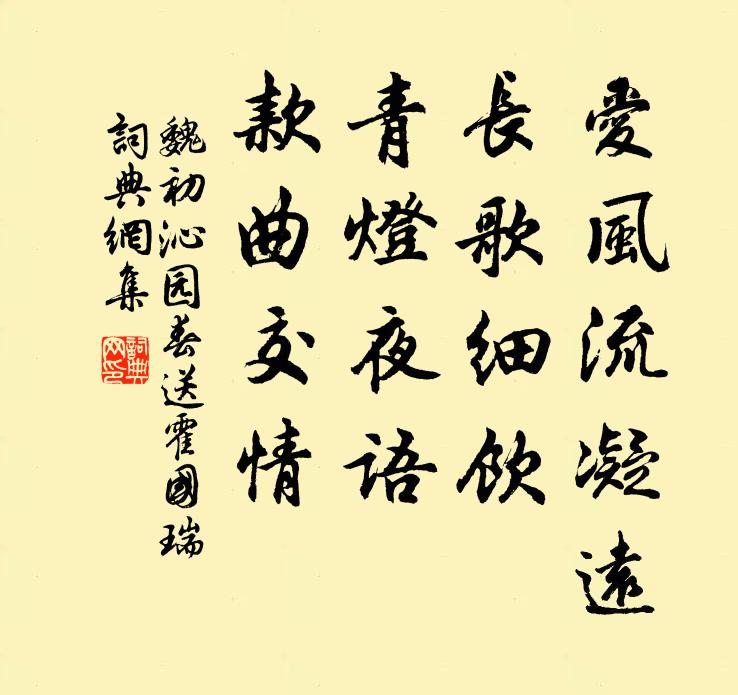 愛風流凝遠
長歌細飲
青燈夜語
款曲交情
魏初沁园春送霍國瑞
詞典網集
詞典网印